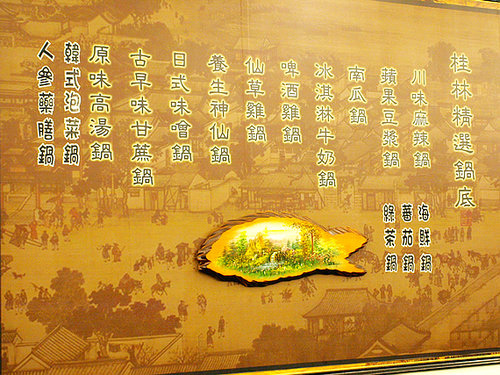 桂林精選鍋底
川味麻辣鍋
海鮮鍋
蕃茄鍋
綠茶鍋
蘋果豆漿鍋
南瓜鍋
冰淇淋牛奶鍋
啤酒雞鍋
仙草雞鍋
養生神仙鍋
日式味噌鍋
古早味甘蔗鍋
原味高湯鍋
韓式泡菜鍋
人參藥膳鍋